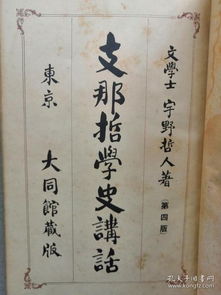 文學士 宇野哲人著
(第四版)
支那哲學史講話
東京 大同館藏版
孔夫子旧书网